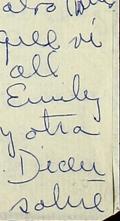 que vi
all
Emily
y otra
Dicen
sobre